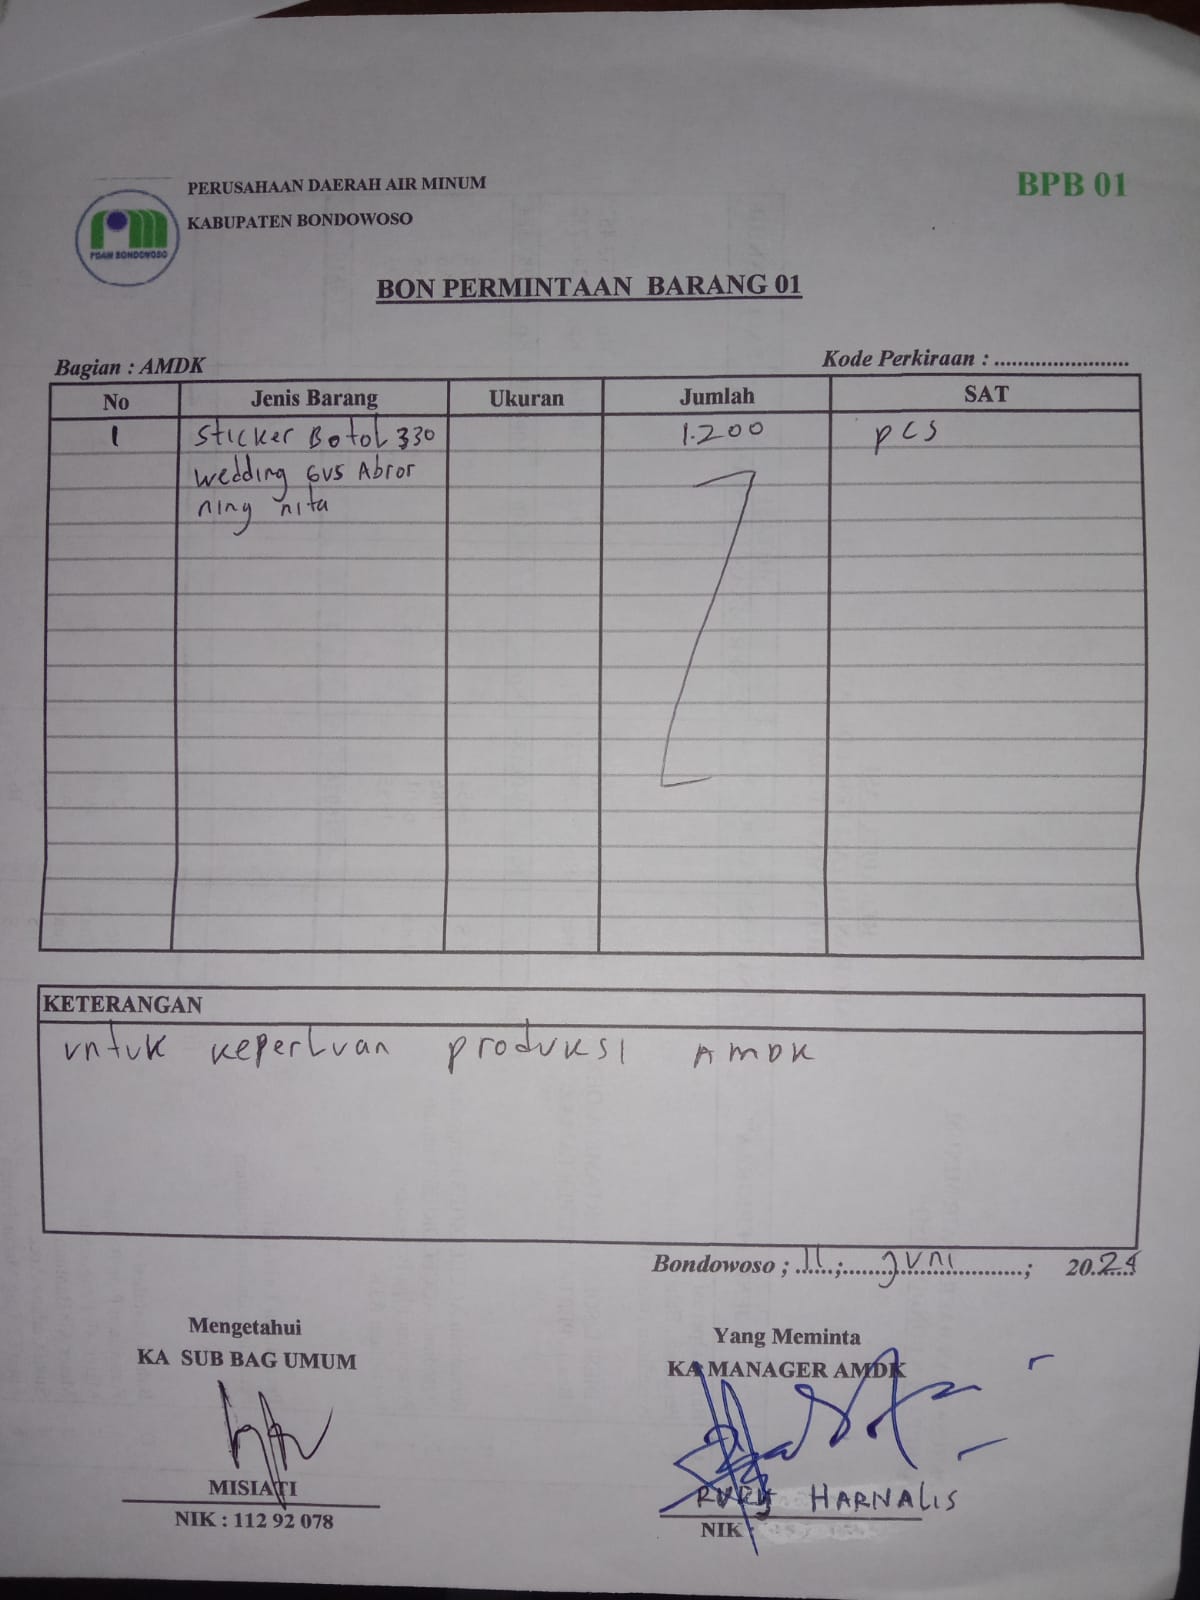 PERUSAHAAN DAERAH AIR MINUM
KABUPATEN BONDOWOSO
BPB 01
PDAM BONDOWOSO
BON PERMINTAAN BARANG 01
Bagian : AMDK
Kode Perkiraan : .......................
No Jenis Barang Ukuran Jumlah SAT
1 Sticker Botol 330 1.200 pcs
wedding Gus Abror
ning nita
KETERANGAN
untuk keperluan produksi AMDK
Bondowoso ; 11 ; Juni ; 2024
Mengetahui
KA SUB BAG UMUM
MISIATI
NIK : 112 92 078
Yang Meminta
KA MANAGER AMDK
RURY HARNALIS
NIK :